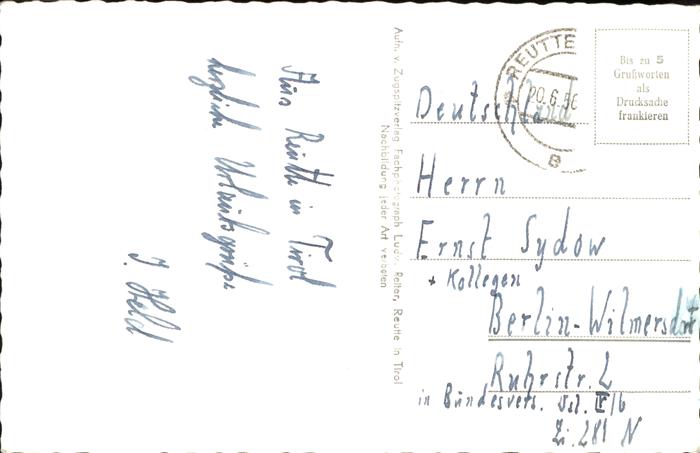 Aus Reutte in Tirol
herzliche Urlaubsgrüße
J. Held
Aufn. v. Zugspitzverlag Fachphotograph Ludw. Reiter, Reutte in Tirol
Nachbildung jeder Art verboten
REUTTE
20.6.56
8
Bis zu 5
Grußworten
als
Drucksache
frankieren
Deutschland
Herrn
Ernst Sydow
+ Kollegen
Berlin-Wilmersdorf
Ruhrstr. 2
in Bundesvers. Vst. II/b
Zi. 281 N